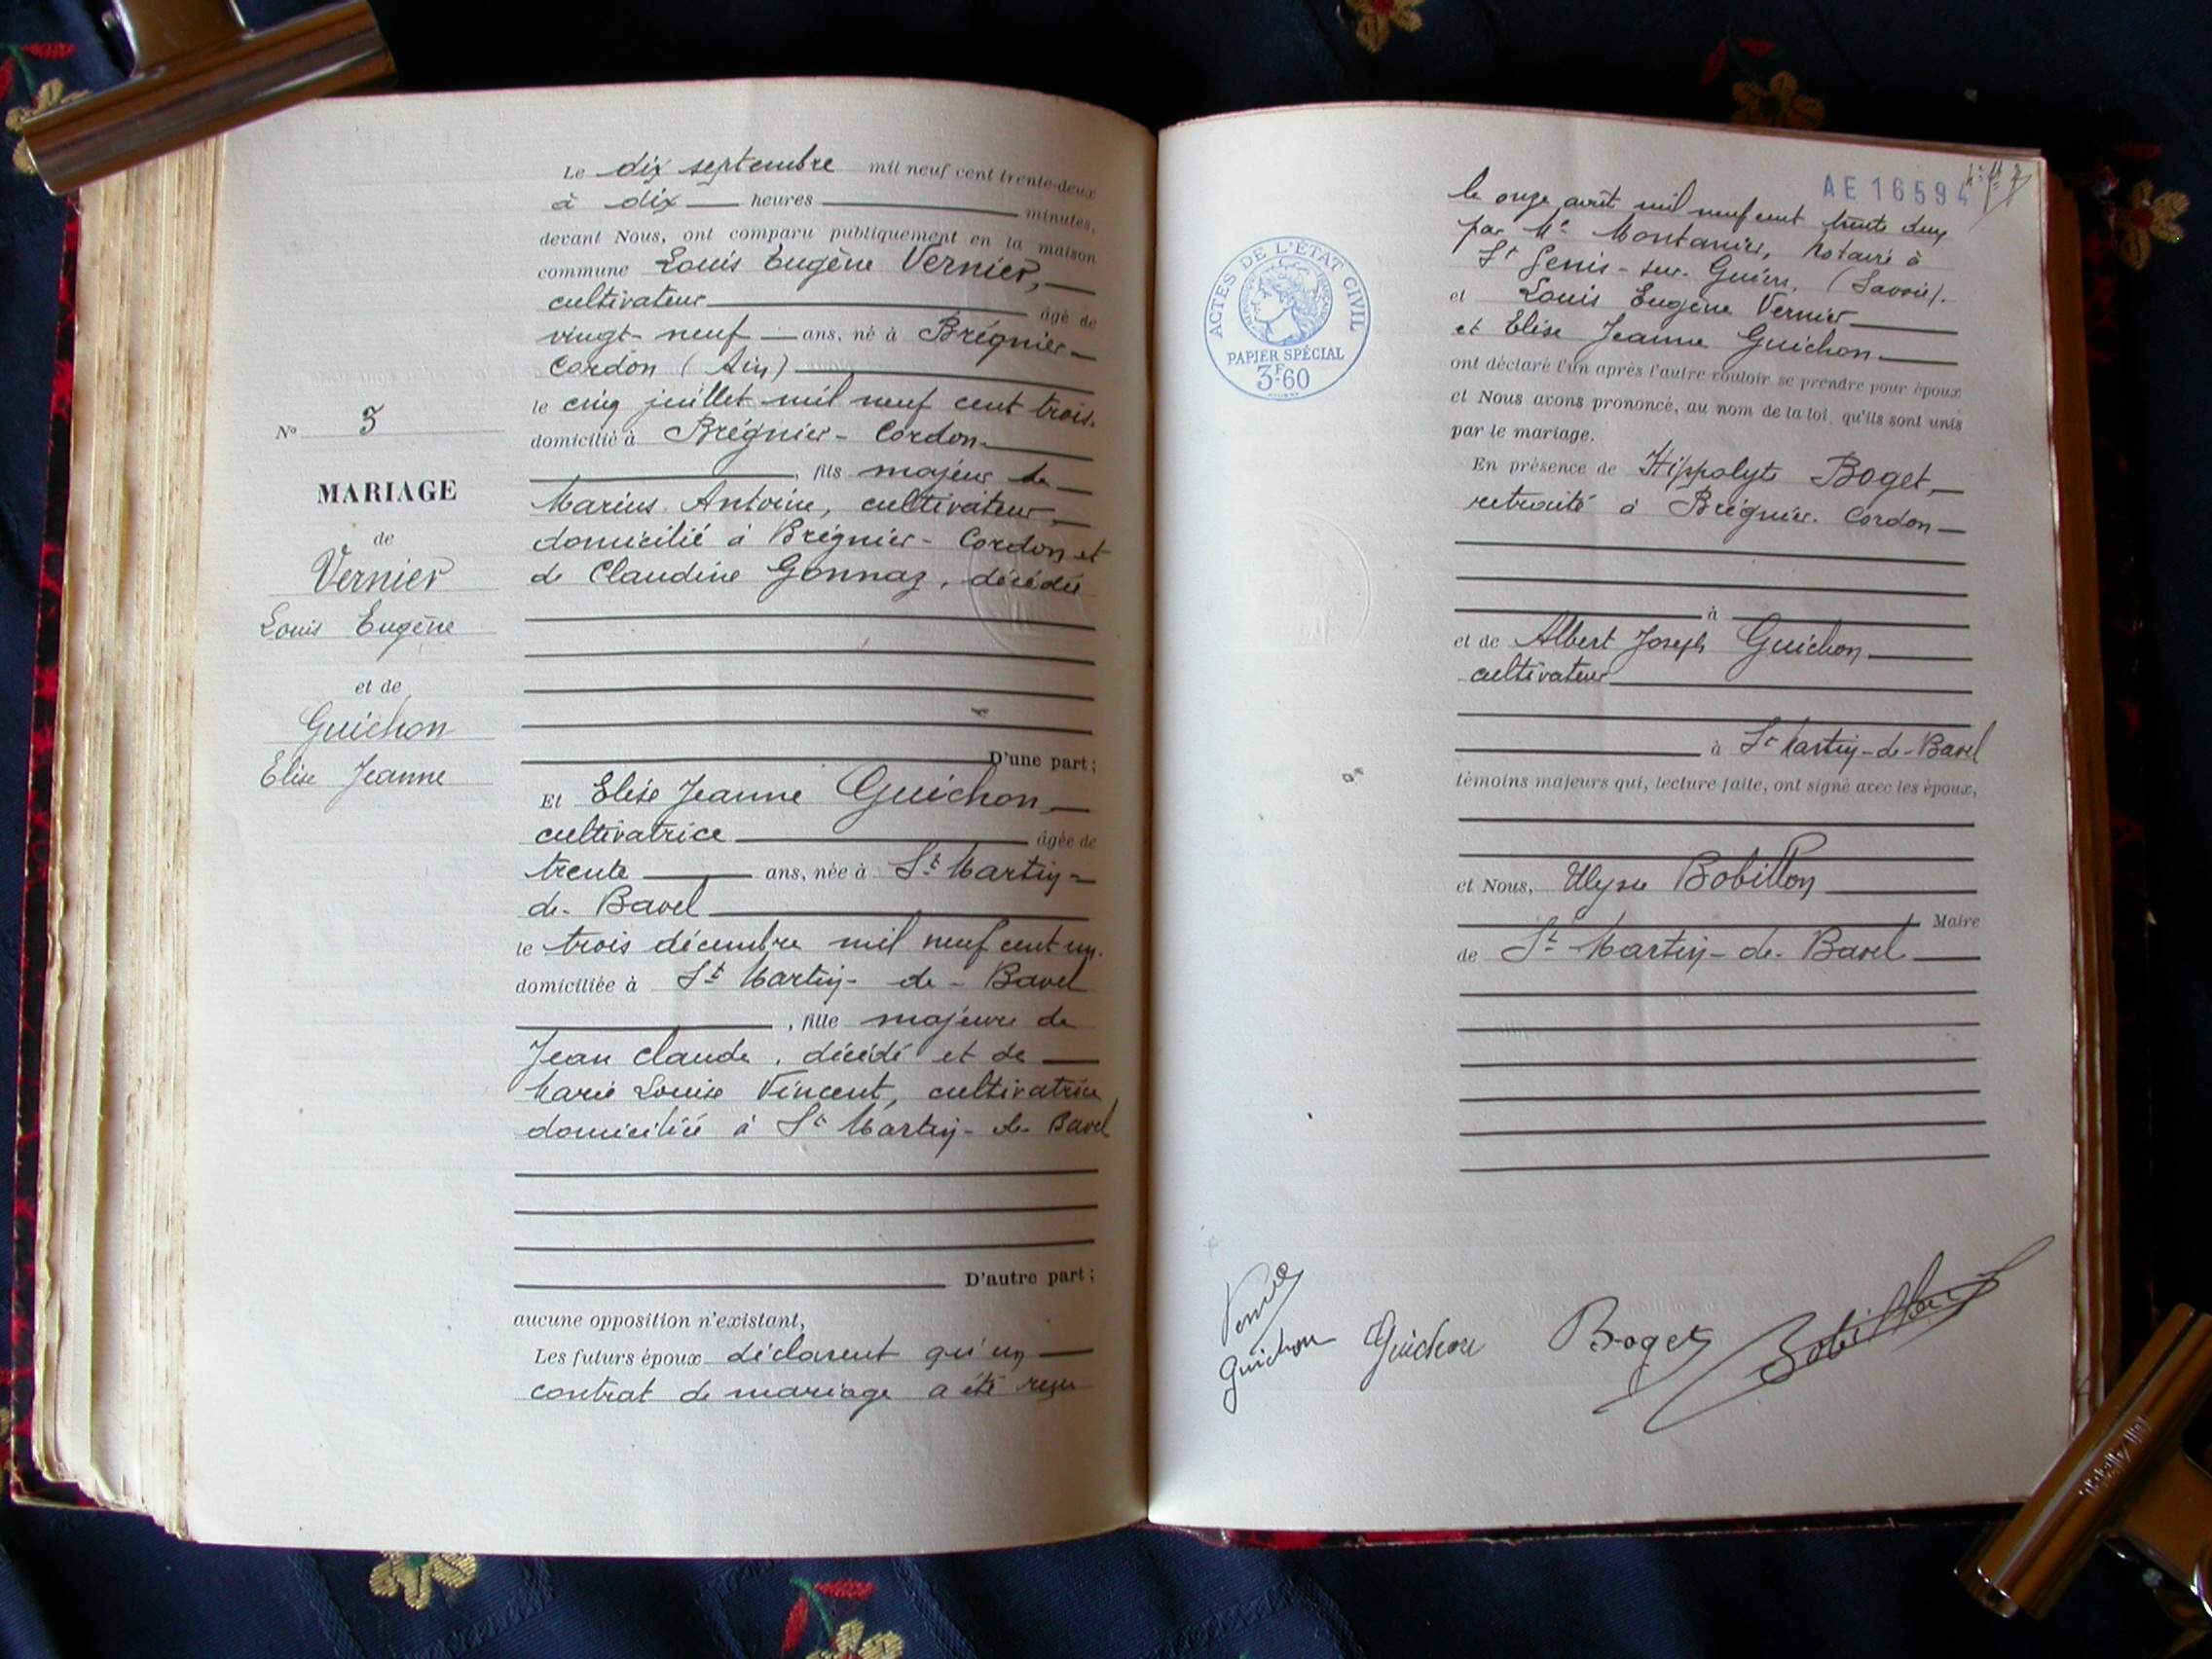 N° 3
MARIAGE
de
Vernier
Louis Eugène
et de
Guichon
Elise Jeanne
Le dix septembre mil neuf cent trente-deux
à dix heures minutes,
devant Nous, ont comparu publiquement en la maison
commune Louis Eugène Vernier,
cultivateur âgé de
vingt-neuf ans, né à Brégnier-
Cordon (Ain)
le cinq juillet mil neuf cent trois.
domicilié à Brégnier-Cordon
, fils majeur de
Marius Antoine, cultivateur,
domicilié à Brégnier-Cordon et
de Claudine Gonnaz, décédée
D'une part;
Et Elise Jeanne Guichon
cultivatrice âgée de
trente ans, née à St Martin-
de-Bavel
le trois décembre mil neuf cent un.
domiciliée à St Martin-de-Bavel
, fille majeure de
Jean Claude, décédé et de
Marie Louise Vincent, cultivatrice
domiciliée à St Martin-de-Bavel
D'autre part;
aucune opposition n'existant,
Les futurs époux déclarent qu'un
contrat de mariage a été reçu
AE 16594
le onze août mil neuf cent trente deux
par Me Montanier, notaire à
St Genis-sur-Guiers, (Savoie).
et Louis Eugène Vernier
et Elise Jeanne Guichon
ont déclaré l'un après l'autre vouloir se prendre pour époux
et Nous avons prononcé, au nom de la loi, qu'ils sont unis
par le mariage.
En présence de Hippolyte Boget,
retraité à Brégnier-Cordon
à
et de Albert Joseph Guichon
cultivateur
à St Martin-de-Bavel
témoins majeurs qui, lecture faite, ont signé avec les époux,
et Nous, Ulysse Bobillon
Maire
de St Martin-de-Bavel
ACTES DE L'ÉTAT CIVIL
PAPIER SPÉCIAL
3F60
Vernier
Guichon Guichon Boget Bobillon